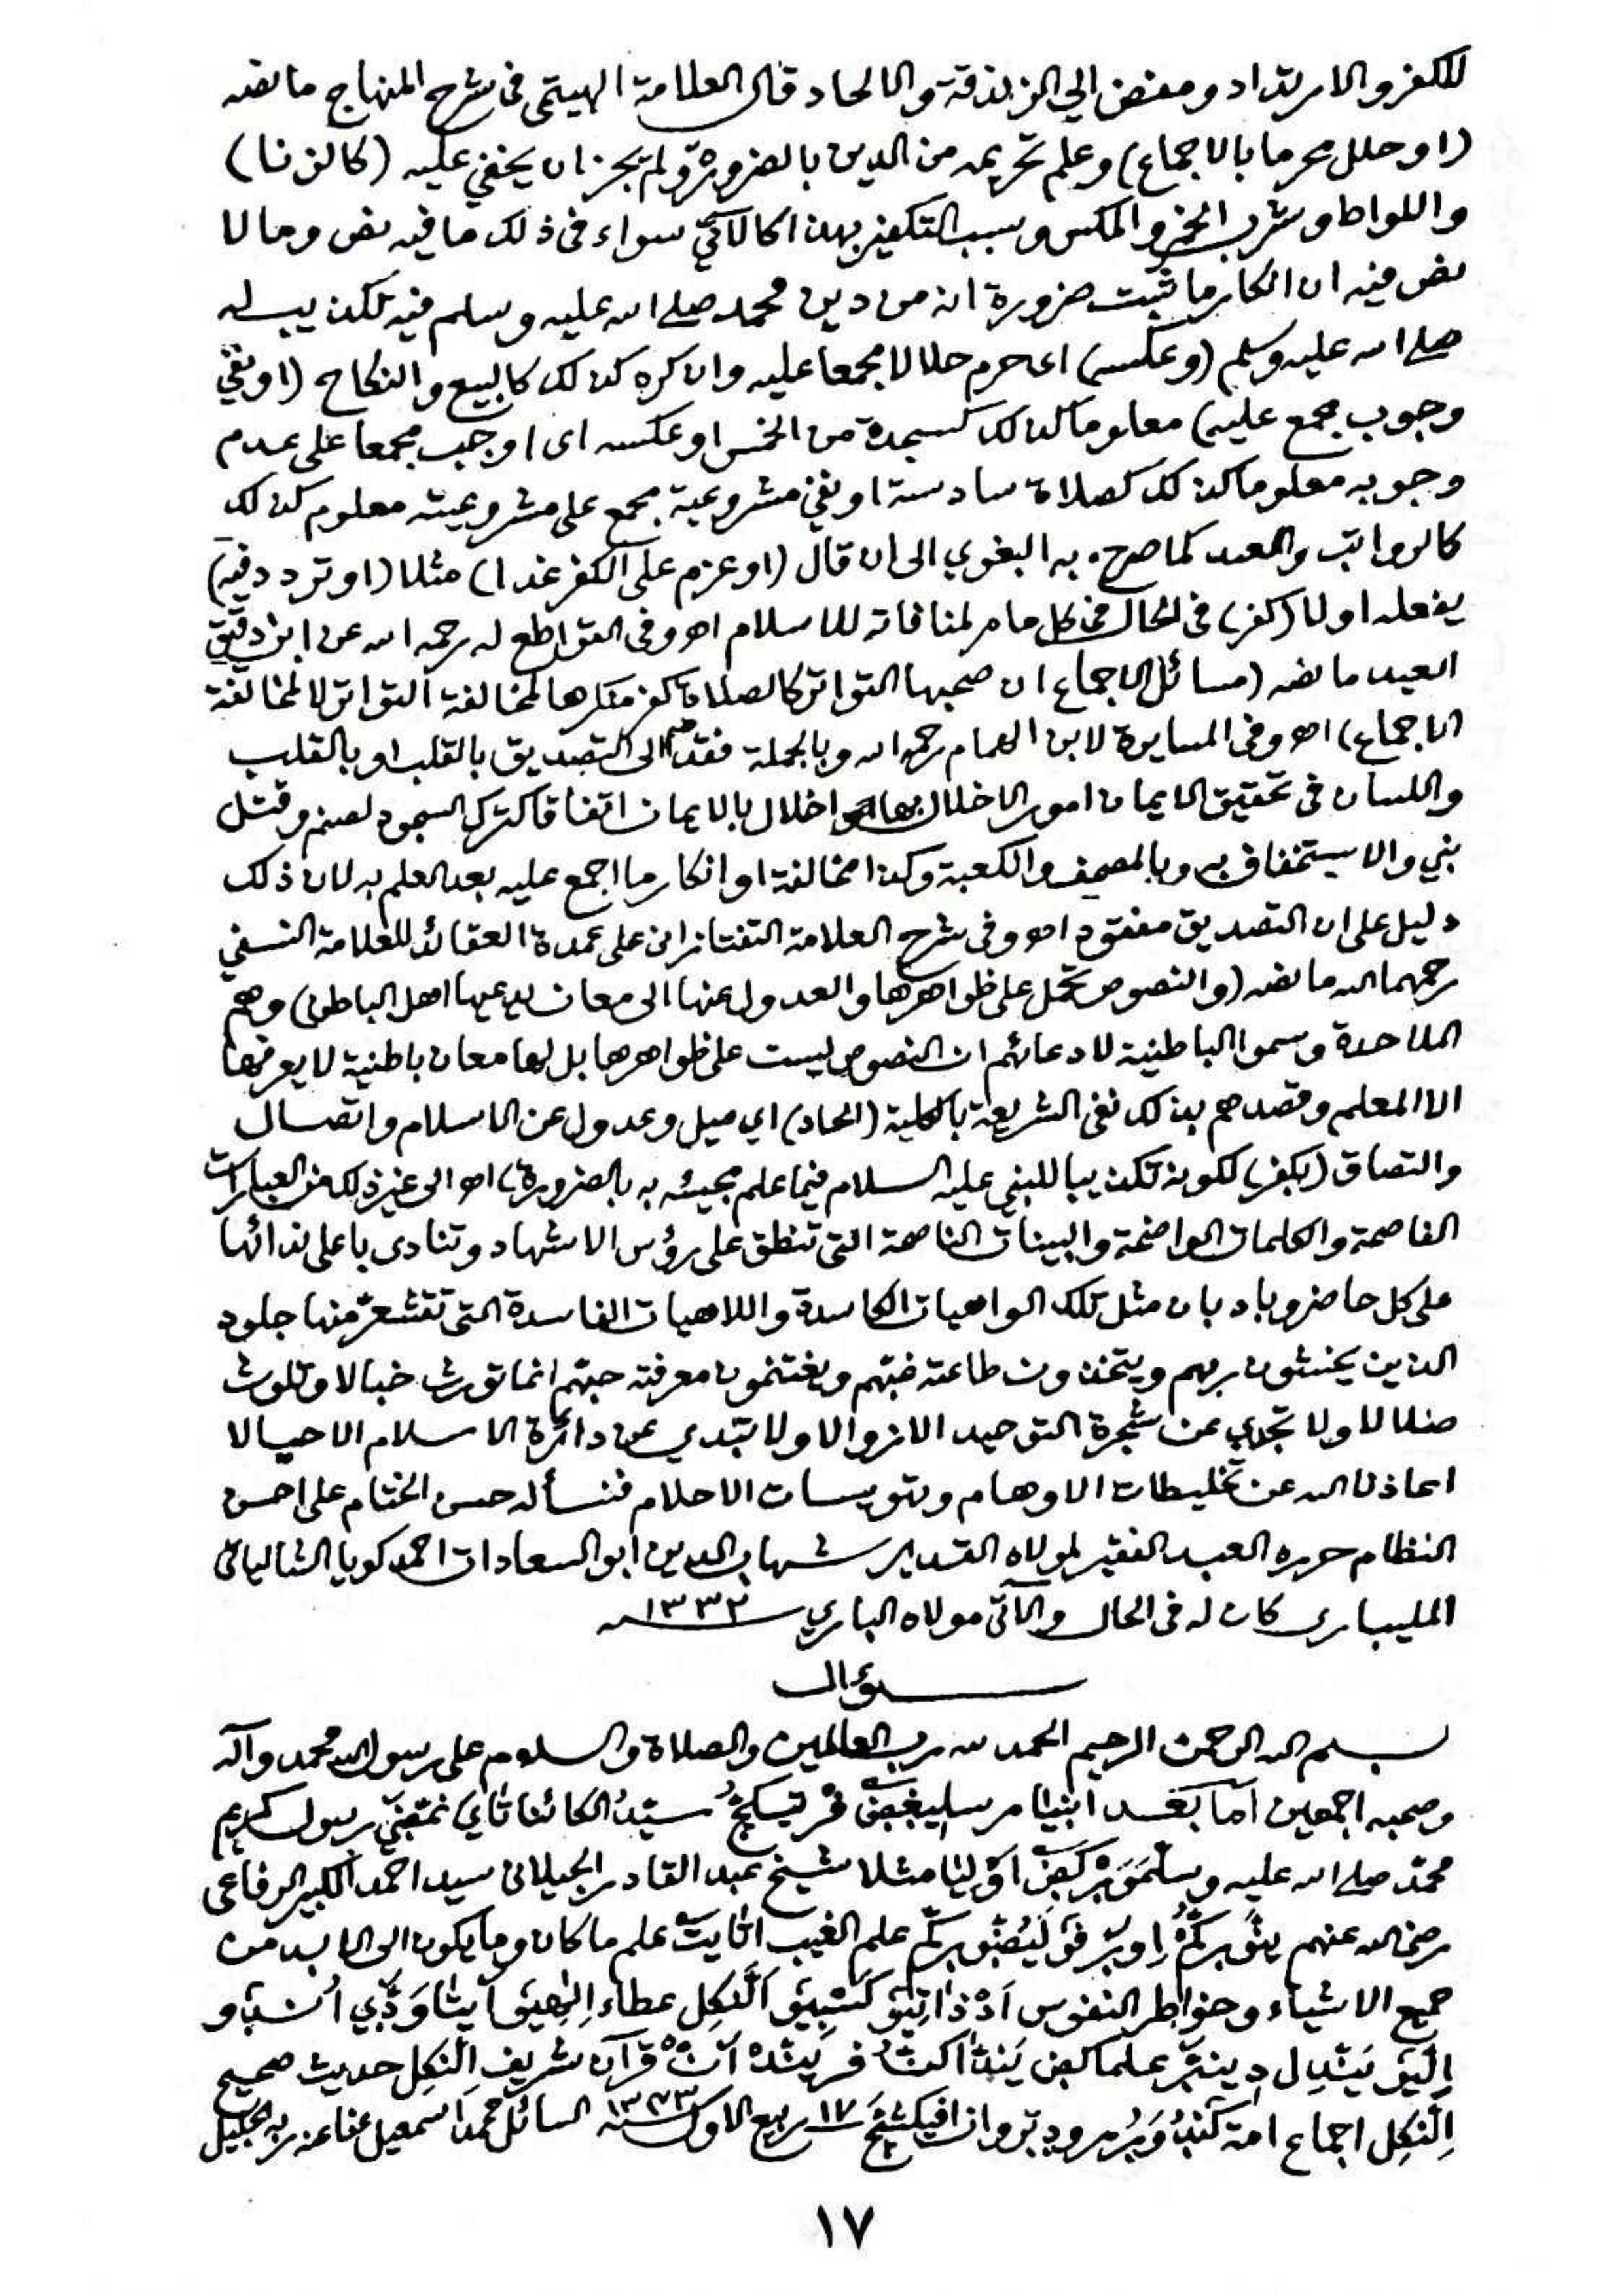 للكفر والارتداد ومفض الي الزندقة والالحاد قال العلامة الهيتمى فى شرح المنهاج ما نصه
(او حلل محرما بالاجماع) وعلم تحريمه من الدين بالضرورة ولم يجز ان يخفي عليه (كالزنا)
واللواط وشرب الخمر والمكس وسبب التكفير بهذا كالآتي سواء فى ذلك ما فيه نص وما لا
نص فيه ان انكار ما ثبت ضرورة انه من دين محمد صلى الله عليه وسلم فيه تكذيب له
صلى الله عليه وسلم (وعكسه) اى حرم حلالا مجمعا عليه وان كره كذلك كالبيع والنكاح (او نفي
وجوب مجمع عليه) معلوما كذلك كسجدة من الخمس او عكسه اى اوجب مجمعا على عدم
وجوبه معلوما كذلك كصلاة سادسة او نفي مشروعية مجمع على مشروعيته معلوم كذلك
كالرواتب والعيد كما صرح به البغوي الى ان قال (او عزم على الكفر غدا) مثلا (او تردد فيه)
يفعله اولا (كفر) فى الحال فى كل ما مر لمنافاته للاسلام اهـ وفى القواطع له رحمه الله عن ابن دقيق
العيد ما نصه (مسائل الاجماع ان صحبها التواتر كالصلاة كفر منكرها لمخالفة التواتر لا لمخالفة
الاجماع) اهـ وفى المسايرة لابن الهمام رحمه الله وبالجملة فقد ضم الى التصديق بالقلب او بالقلب
واللسان فى تحقيق الايمان امور الاخلال بها اخلال بالايمان اتفاقا كترك السجود لصنم وقتل
نبي والاستخفاف به وبالمصحف والكعبة وكذا مخالفة او انكار ما اجمع عليه بعد العلم به لان ذلك
دليل على ان التصديق مفقود اهـ وفى شرح العلامة التفتازانى على عمدة العقائد للعلامة النسفي
رحمهما الله ما نصه (والنصوص تحمل على ظواهرها والعدول عنها الى معان يدعيها اهل الباطن) وهم
الملاحدة وسموا الباطنية لادعائهم ان النصوص ليست على ظواهرها بل لها معان باطنية لا يعرفها
الا المعلم وقصدهم بذلك نفى الشريعة بالكلية (الحاد) اي ميل وعدول عن الاسلام واتصال
والتصاق (بكفر) لكونه تكذيبا للنبي عليه السلام فيما علم مجيئه به بالضرورة) اهـ الى غير ذلك من العبارات
الفاصحة والكلمات الواضحة والبينات الناصحة التى تنطق على رؤس الاشهاد وتنادى باعلى ندائها
على كل حاضر وباد بان مثل تلك الواهيات الكاسدة واللاهيات الفاسدة التى تقشعر منها جلود
الذين يخشون ربهم ويتخذون طاعته ويغتنمون معرفته انما تورث خبالا وتلوث
ضلالا ولا تجدي عن شجرة التوحيد الا زوالا ولا تبدي عن دائرة الاسلام الا حيالا
اعاذنا الله عن تخليطات الاوهام وتويسات الاحلام فنسأله حسن الختام على احسن
النظام حرره العبد الفقير لمولاه القدير شهاب الدين ابو السعادات احمد كويا الشالياتى
المليبارى كان له فى الحال والآتى مولاه الباري ١٣٣٢
سؤال
بسم الله الرحمن الرحيم الحمد لله رب العالمين والصلاة والسلام على رسول الله محمد وآله
وصحبه اجمعين اما بعد انبيا رسول كريم
محمد صلى الله عليه وسلم اوليا مثلا شيخ عبد القادر الجيلانى سيد احمد الكبير الرفاعى
رضى الله عنهم علم الغيب علم ما كان وما يكون الى الابد من
جميع الاشياء وخواطر النفوس عطاء
قرآن شريف الّنكل حديث صحيح
الّنكل اجماع امة ١٧ ربيع الاول سنة ١٣٤٣ السائل محمد اسمعيل عفا عنه ربه الجليل
١٧